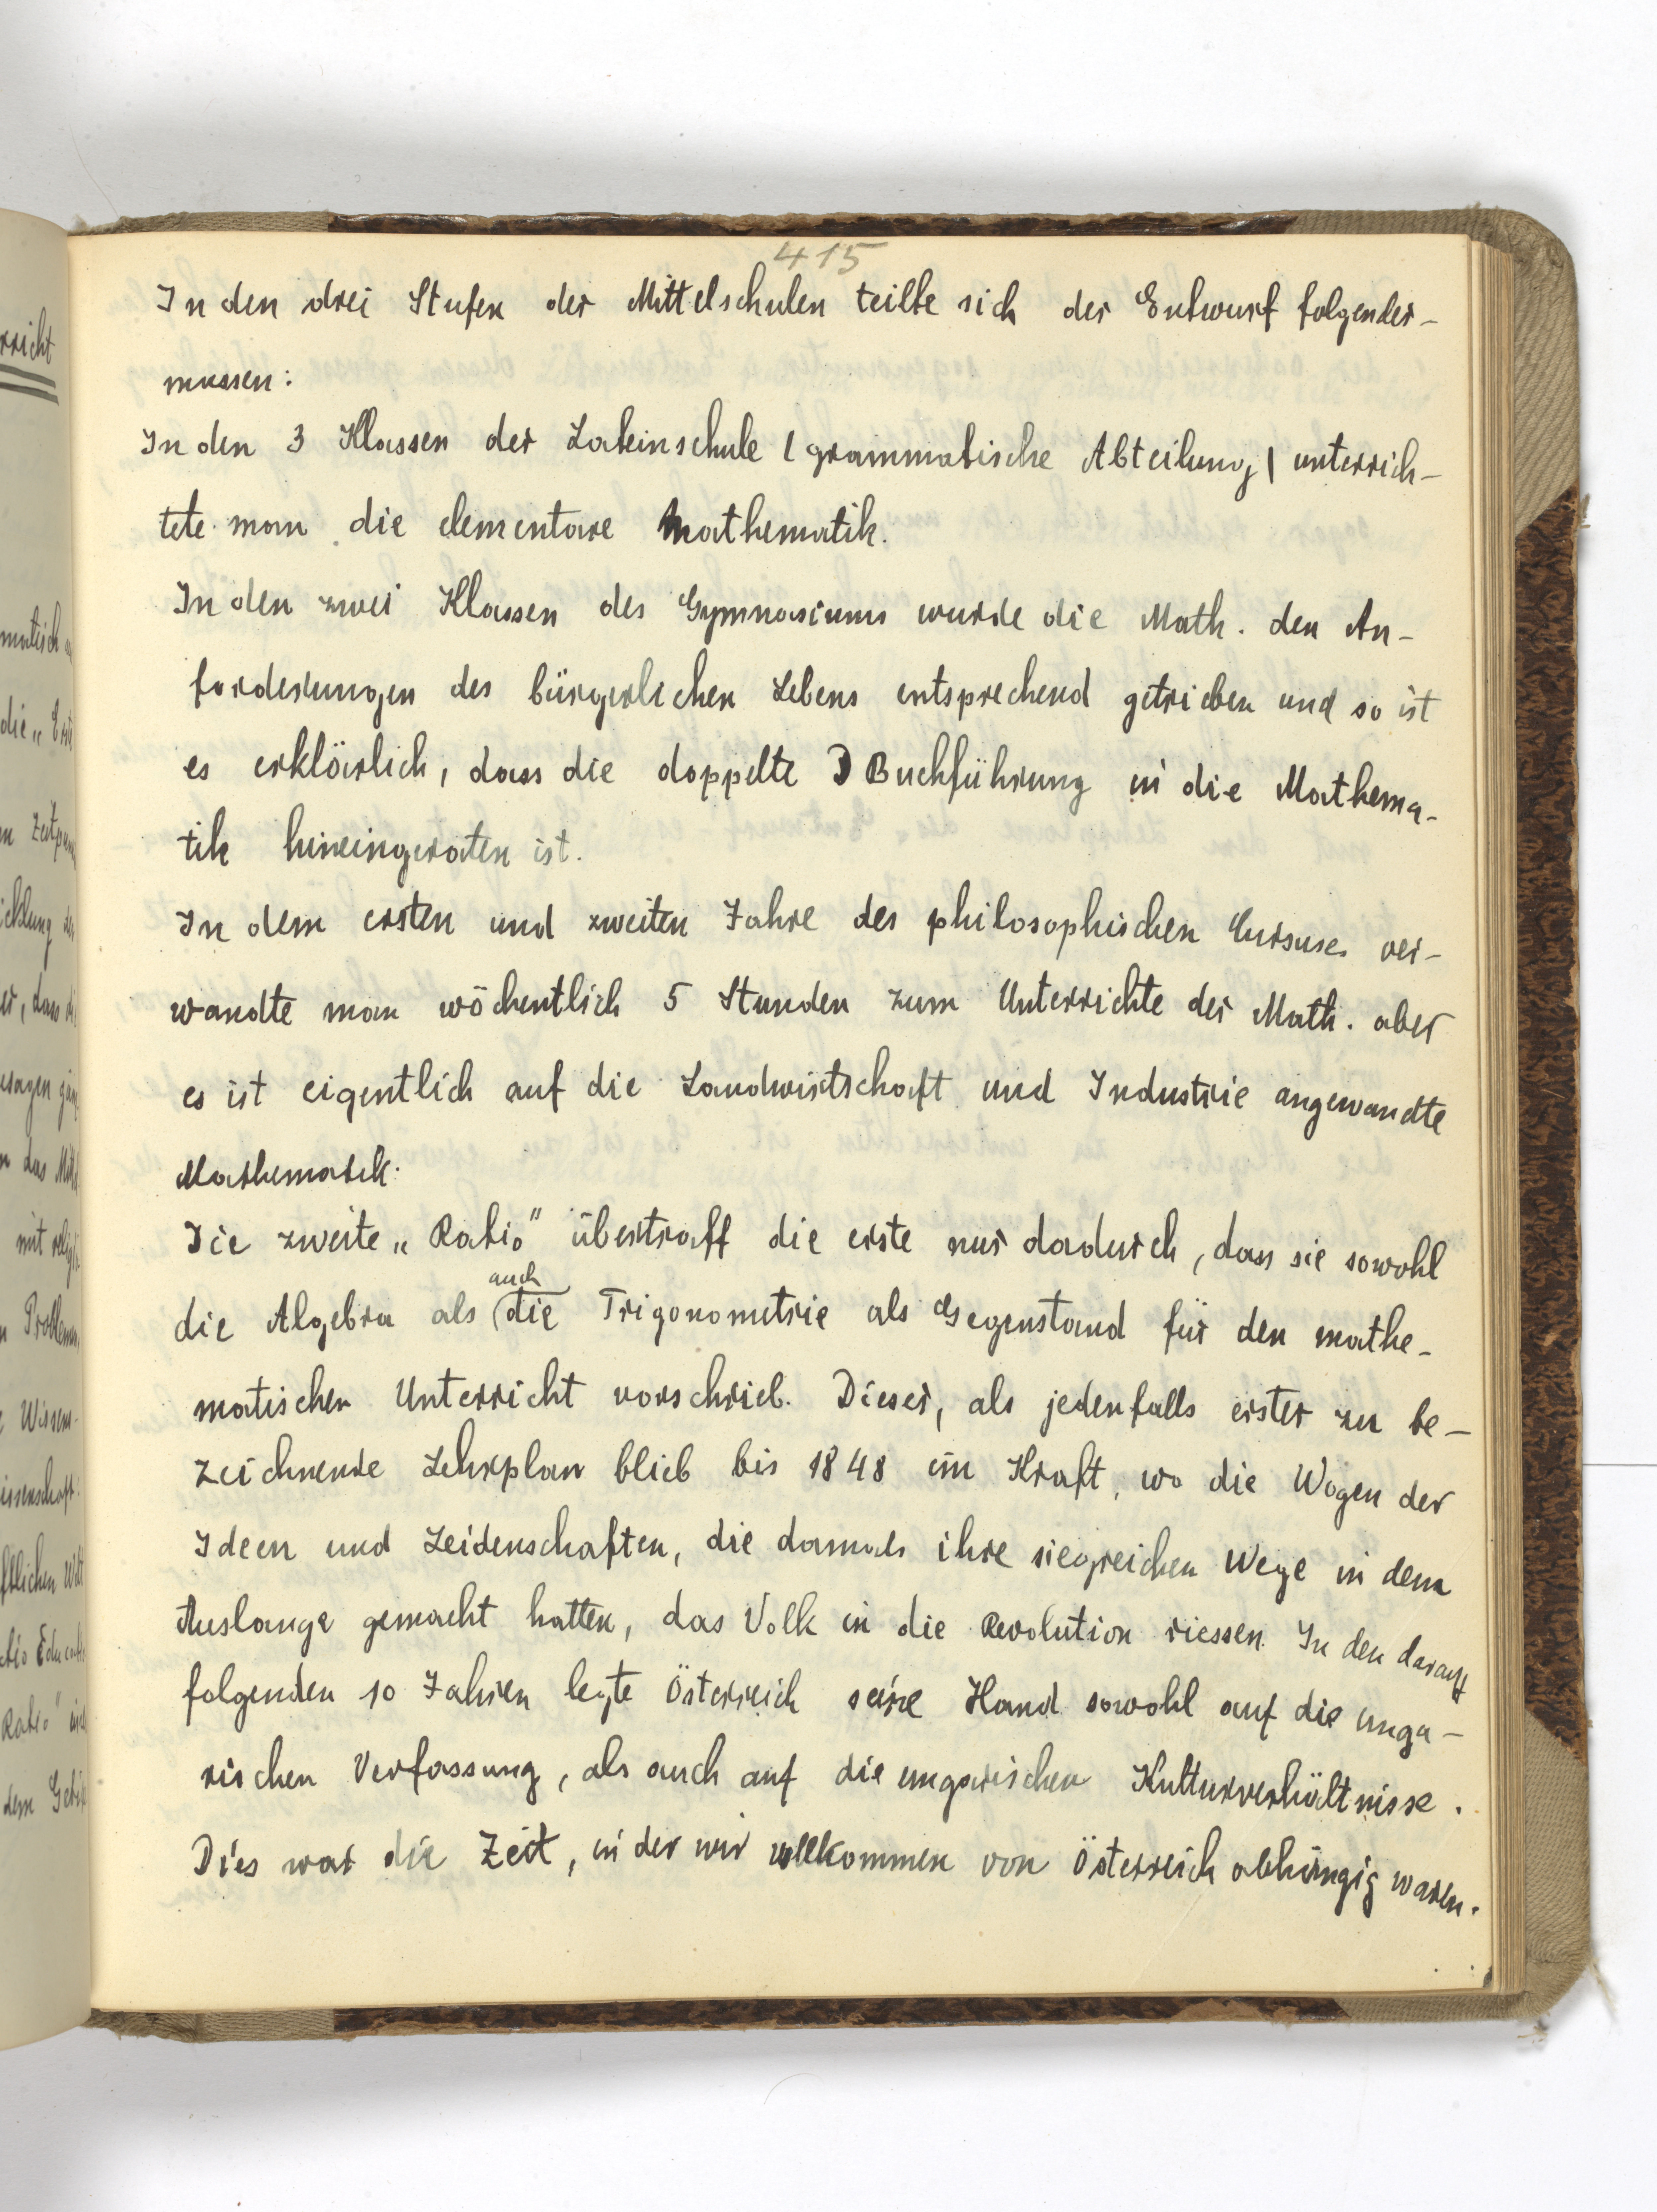 415
In den drei Stufen der Mittelschulen teilte sich der Entwurf folgender-
massen:
In den 3 Klassen der Lateinschule (grammatische Abteilung) unterrich-
tete man die elementare Mathematik.
In den zwei Klassen des Gymnasiums wurde die Math. den An-
forderungen des bürgerlichen Lebens entsprechend getrieben und so ist
es erklärlich, dass die doppelte Buchführung in die Mathema-
tik hineingeraten ist.
In dem ersten und zweiten Jahre des philosophischen Cursuses ver-
wandte man wöchentlich 5 Stunden zum Unterrichte der Math. aber
es ist eigentlich auf die Landwirtschaft und Industrie angewandte
Mathematik.
Die zweite „Ratio" übertraff die erste nur dadurch, dass sie sowohl
auch
die Algebra als die Trigonometrie als Gegenstand für den mathe-
matischen Unterricht vorschrieb. Dieser, als jedenfalls erster zu be-
zeichnende Lehrplan blieb bis 1848 in Kraft, wo die Wogen der
Ideen und Leidenschaften, die damals ihre siegreichen Wege in dem
Auslange gemacht hatten, das Volk in die Revolution riessen. In den darauf
folgenden 10 Jahren legte Österreich seine Hand sowohl auf die unga-
rischen Verfassung, als auch auf die ungarischen Kulturverhältnisse.
Dies war die Zeit, in der wir vollkommen von Österreich abhängig waren.